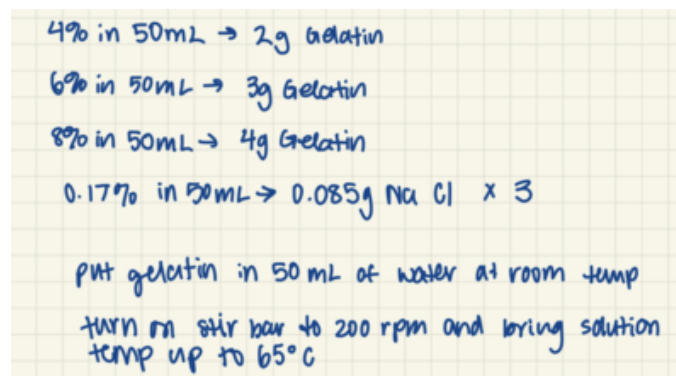 4% in 50mL → 2g Gelatin
6% in 50mL → 3g Gelatin
8% in 50mL → 4g Gelatin
0.17% in 50mL → 0.085g Na Cl x 3
put gelatin in 50 mL of water at room temp
turn on stir bar to 200 rpm and bring solution
temp up to 65°C